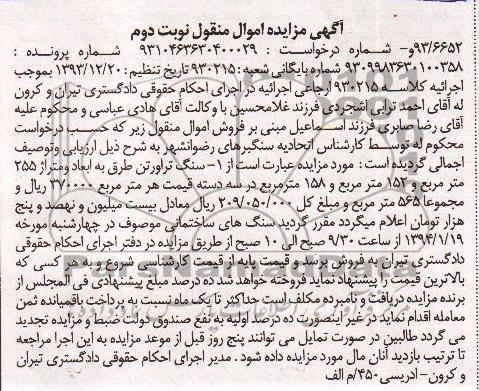 آگهی مزایده اموال منقول نوبت دوم
۹۳/۶۶۵۲و- شماره درخواست : ۹۳۱۰۴۶۳۶۳۰۴۰۰۰۲۹ شماره پرونده :
۹۳۰۹۹۸۳۶۳۰۱۰۰۳۵۸ شماره بایگانی شعبه : ۹۳۰۲۱۵ تاریخ تنظیم : ۱۳۹۳/۱۲/۲۰ بموجب
اجرائیه کلاسه ۹۳۰۲۱۵ ارجاعی اجرائیه در اجرای احکام حقوقی دادگستری تیران و کرون
له آقای احمد ترابی اشجردی فرزند غلامحسین با وکالت آقای هادی عباسی و محکوم علیه
آقای رضا صابری فرزند اسماعیل مبنی بر فروش اموال منقول زیر که حسب درخواست
محکوم له توسط کارشناس اتحادیه سنگبرهای رضوانشهر به شرح ذیل ارزیابی وتوصیف
اجمالی گردیده است : مورد مزایده عبارت است از ۱- سنگ تراورتن طرق به ابعاد ومتراژ ۲۵۵
متر مربع و ۱۵۲ متر مربع و ۱۵۸ مترمربع در سه دسته قیمت هر متر مربع ۳۷۰۰۰۰ ریال و
مجموعا ۵۶۵ متر مربع و مبلغ کل ۲۰۹/۰۵۰/۰۰۰ ریال معادل بیست میلیون و نهصد و پنج
هزار تومان اعلام میگردد مقرر گردید سنگ های ساختمانی موصوف در چهارشنبه مورخه
۱۳۹۴/۱/۱۹ از ساعت ۹/۳۰ صبح الی ۱۰ صبح از طریق مزایده در دفتر اجرای احکام حقوقی
دادگستری تیران به فروش برسد و قیمت پایه از قیمت کارشناسی شروع و به هر کسی که
بالاترین قیمت را پیشنهاد نماید فروخته خواهد شد ده درصد مبلغ پیشنهادی فی المجلس از
برنده مزایده دریافت و نامبرده مکلف است حداکثر تا یک ماه نسبت به پرداخت باقیمانده ثمن
معامله اقدام نماید در غیر اینصورت ده درصد اولیه به نفع صندوق دولت ضبط و مزایده تجدید
می گردد طالبین در صورت تمایل می توانند پنج روز قبل از موعد مزایده به این اجرا مراجعه
تا ترتیب بازدید آنان مال مورد مزایده داده شود . مدیر اجرای احکام حقوقی دادگستری تیران
و کرون- ادریسی۴۵۰/م الف